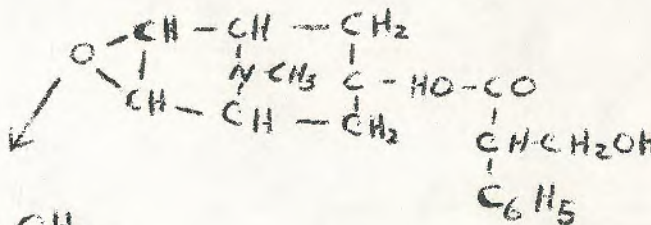 CH - CH - CH2
O N CH3 C - HO - CO
CH - CH - CH2 CH-CH2OH
C6H5
CH